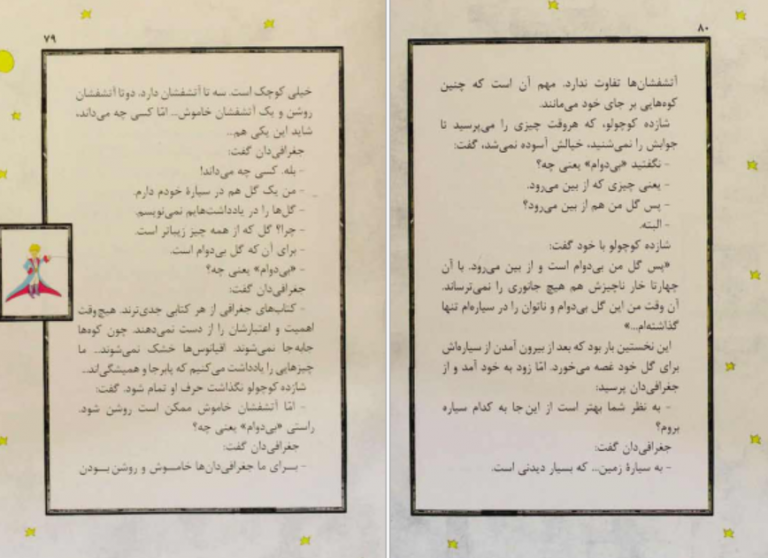 ۷۹
خیلی کوچک است. سه تا آتشفشان دارد. دوتا آتشفشان
روشن و یک آتشفشان خاموش... امّا کسی چه می‌داند،
شاید این یکی هم...
جغرافی‌دان گفت:
- بله. کسی چه می‌داند!
- من یک گل هم در سیارهٔ خودم دارم.
- گل‌ها را در یادداشت‌هایم نمی‌نویسم.
- چرا؟ گل که از همه چیز زیباتر است.
- برای آن که گل بی‌دوام است.
- «بی‌دوام» یعنی چه؟
جغرافی‌دان گفت:
- کتاب‌های جغرافی از هر کتابی جدی‌ترند. هیچ‌وقت
اهمیت و اعتبارشان را از دست نمی‌دهند. چون کوه‌ها
جابه‌جا نمی‌شوند. اقیانوس‌ها خشک نمی‌شوند.. ما
چیزهایی را یادداشت می‌کنیم که پابرجا و همیشگی‌اند..
شازده کوچولو نگذاشت حرف او تمام شود. گفت:
- امّا آتشفشان خاموش ممکن است روشن شود.
راستی «بی‌دوام» یعنی چه؟
جغرافی‌دان گفت:
- بـرای ما جغرافی‌دان‌ها خامـوش و روشن بـودن
۸۰
آتشفشان‌ها تفاوت ندارد. مهم آن است که چنین
کوه‌هایی بر جای خود می‌مانند.
شازده کوچولو، که هروقت چیزی را می‌پرسید تا
جوابش را نمی‌شنید، خیالش آسوده نمی‌شد، گفت:
- نگفتید «بی‌دوام» یعنی چه؟
- یعنی چیزی که از بین می‌رود.
- پس گل من هم از بین می‌رود؟
- البته.
شازده کوچولو با خود گفت:
«پس گل من بی‌دوام است و از بین می‌رود. با آن
چهارتا خار ناچیزش هم هیچ جانوری را نمی‌ترساند.
آن وقت من این گل بی‌دوام و ناتوان را در سیاره‌ام تنها
گذاشته‌ام...»
این نخستین بار بود که بعد از بیرون آمدن از سیاره‌اش
برای گل خود غصه می‌خورد. امّا زود به خود آمد و از
جغرافی‌دان پرسید:
- به نظر شما بهتر است از این جا به کدام سیاره
بروم؟
جغرافی‌دان گفت:
- به سیارهٔ زمین... که بسیار دیدنی است.